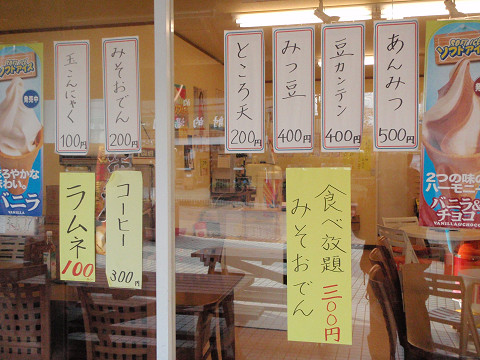 SOFT ICE
ソフトアイス
発売中
まろやかな
味わい。
バニラ
VANILLA
玉こんにゃく
100円
みそおでん
200円
ところ天
200円
みつ豆
400円
豆カンテン
400円
あんみつ
500円
SOFT ICE
ソフトアイス
2つの味の
ハーモニー
バニラ&
チョコ
VANILLA&CHOCO
ラムネ
100
コーヒー
300円
食べ放題 三〇〇円
みそおでん